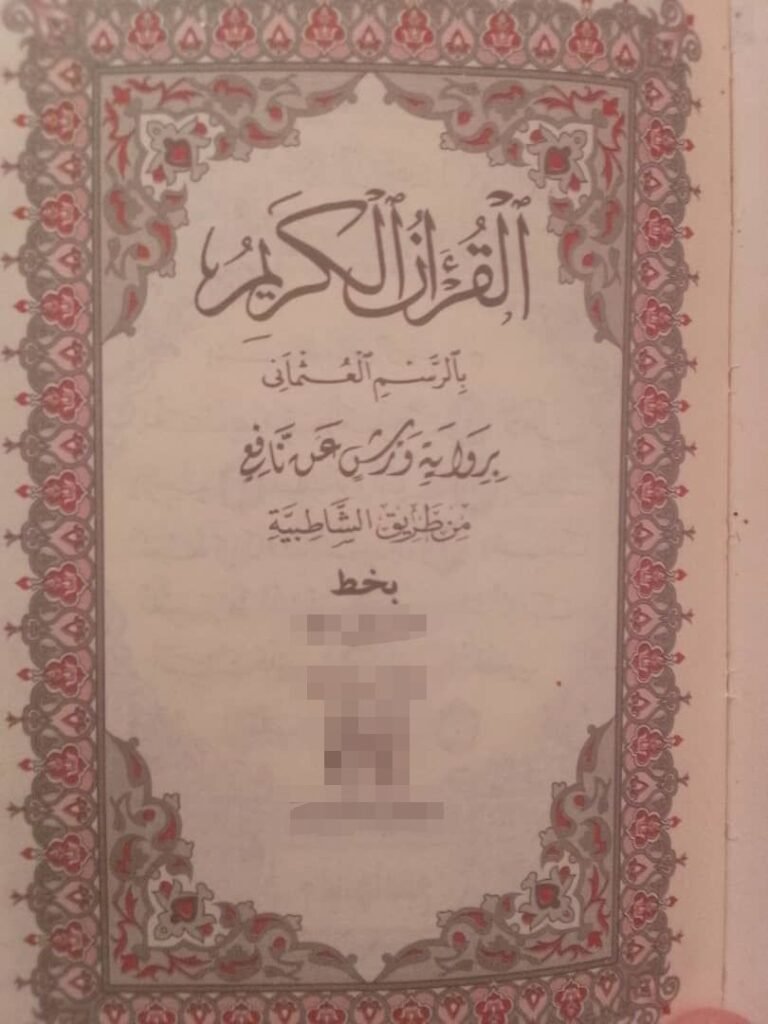 ٱلۡقُرۡءَانُ ٱلۡكَرِيمُ
بِٱلرَّسۡمِ ٱلۡعُثۡمَانِى
بِرِوَايَةِ وَرْشٍ عَن نَّافِعٍ
مِن طَرِيقِ الشَّاطِبِيَّةِ
بخط